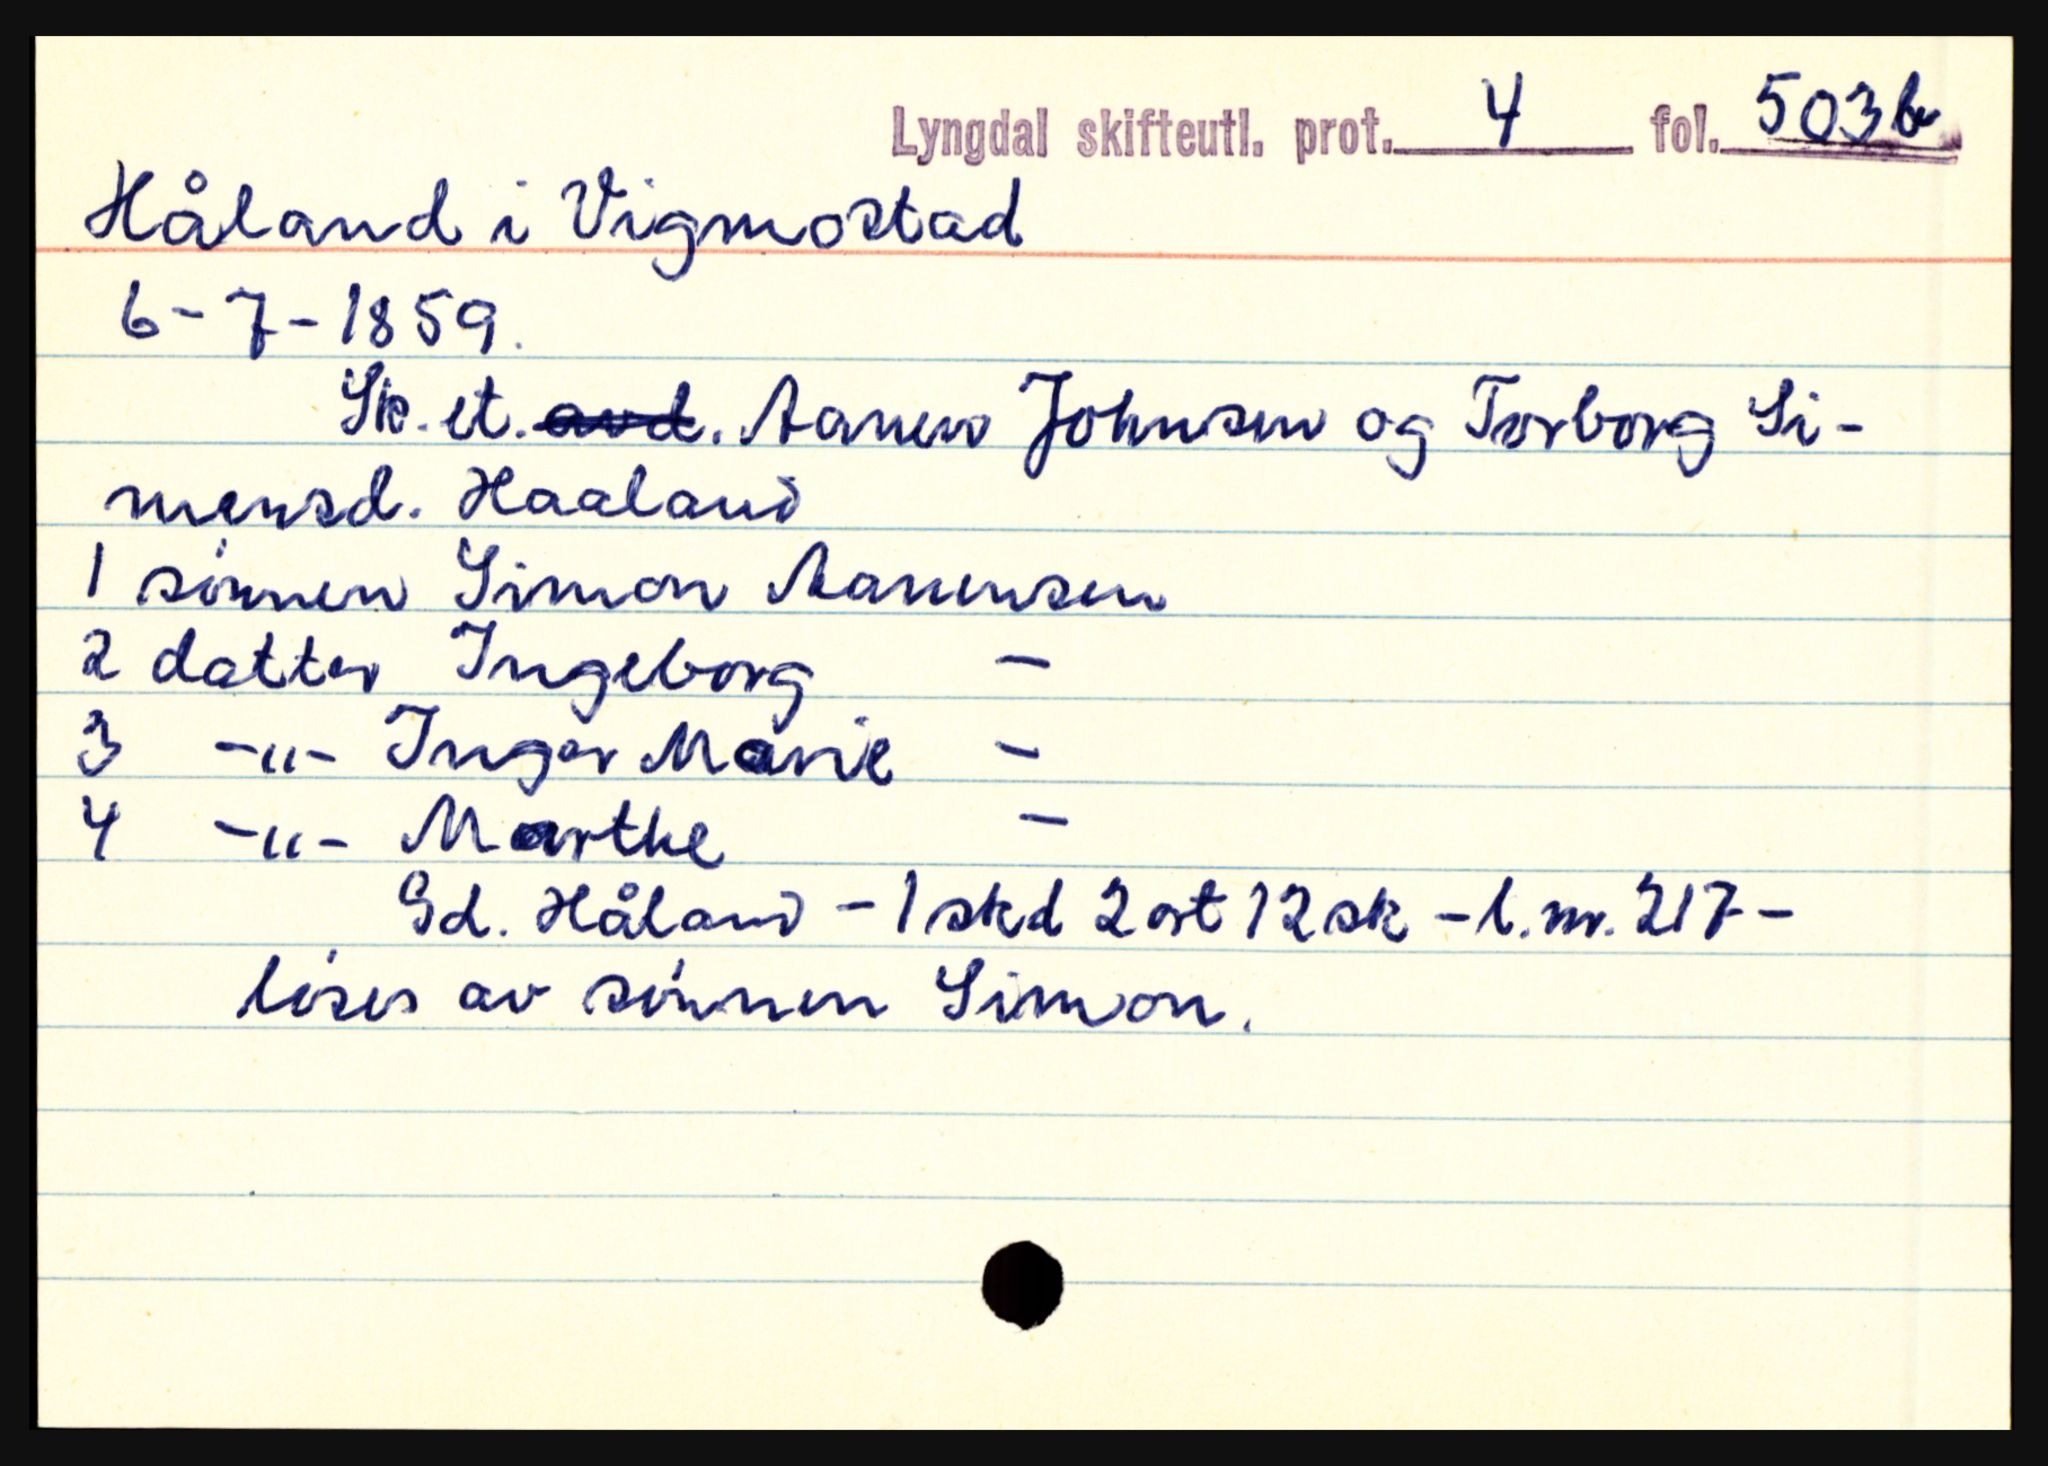 Lyngdal skifteutl. prot. 4 fol. 503b
Håland i Vigmostad
6-7-1859.
Sk. et. avd. Aanen Johnsen og Torborg Si-
mensd. Haaland
1 sønnen Simon Aanensen
2 datter Ingeborg -
3 -"- Inger Marie -
4 -"- Marthe -
Gd. Håland - 1 skd 2 ort 12 sk - l.nr. 217 -
løses av sønnen Simon.